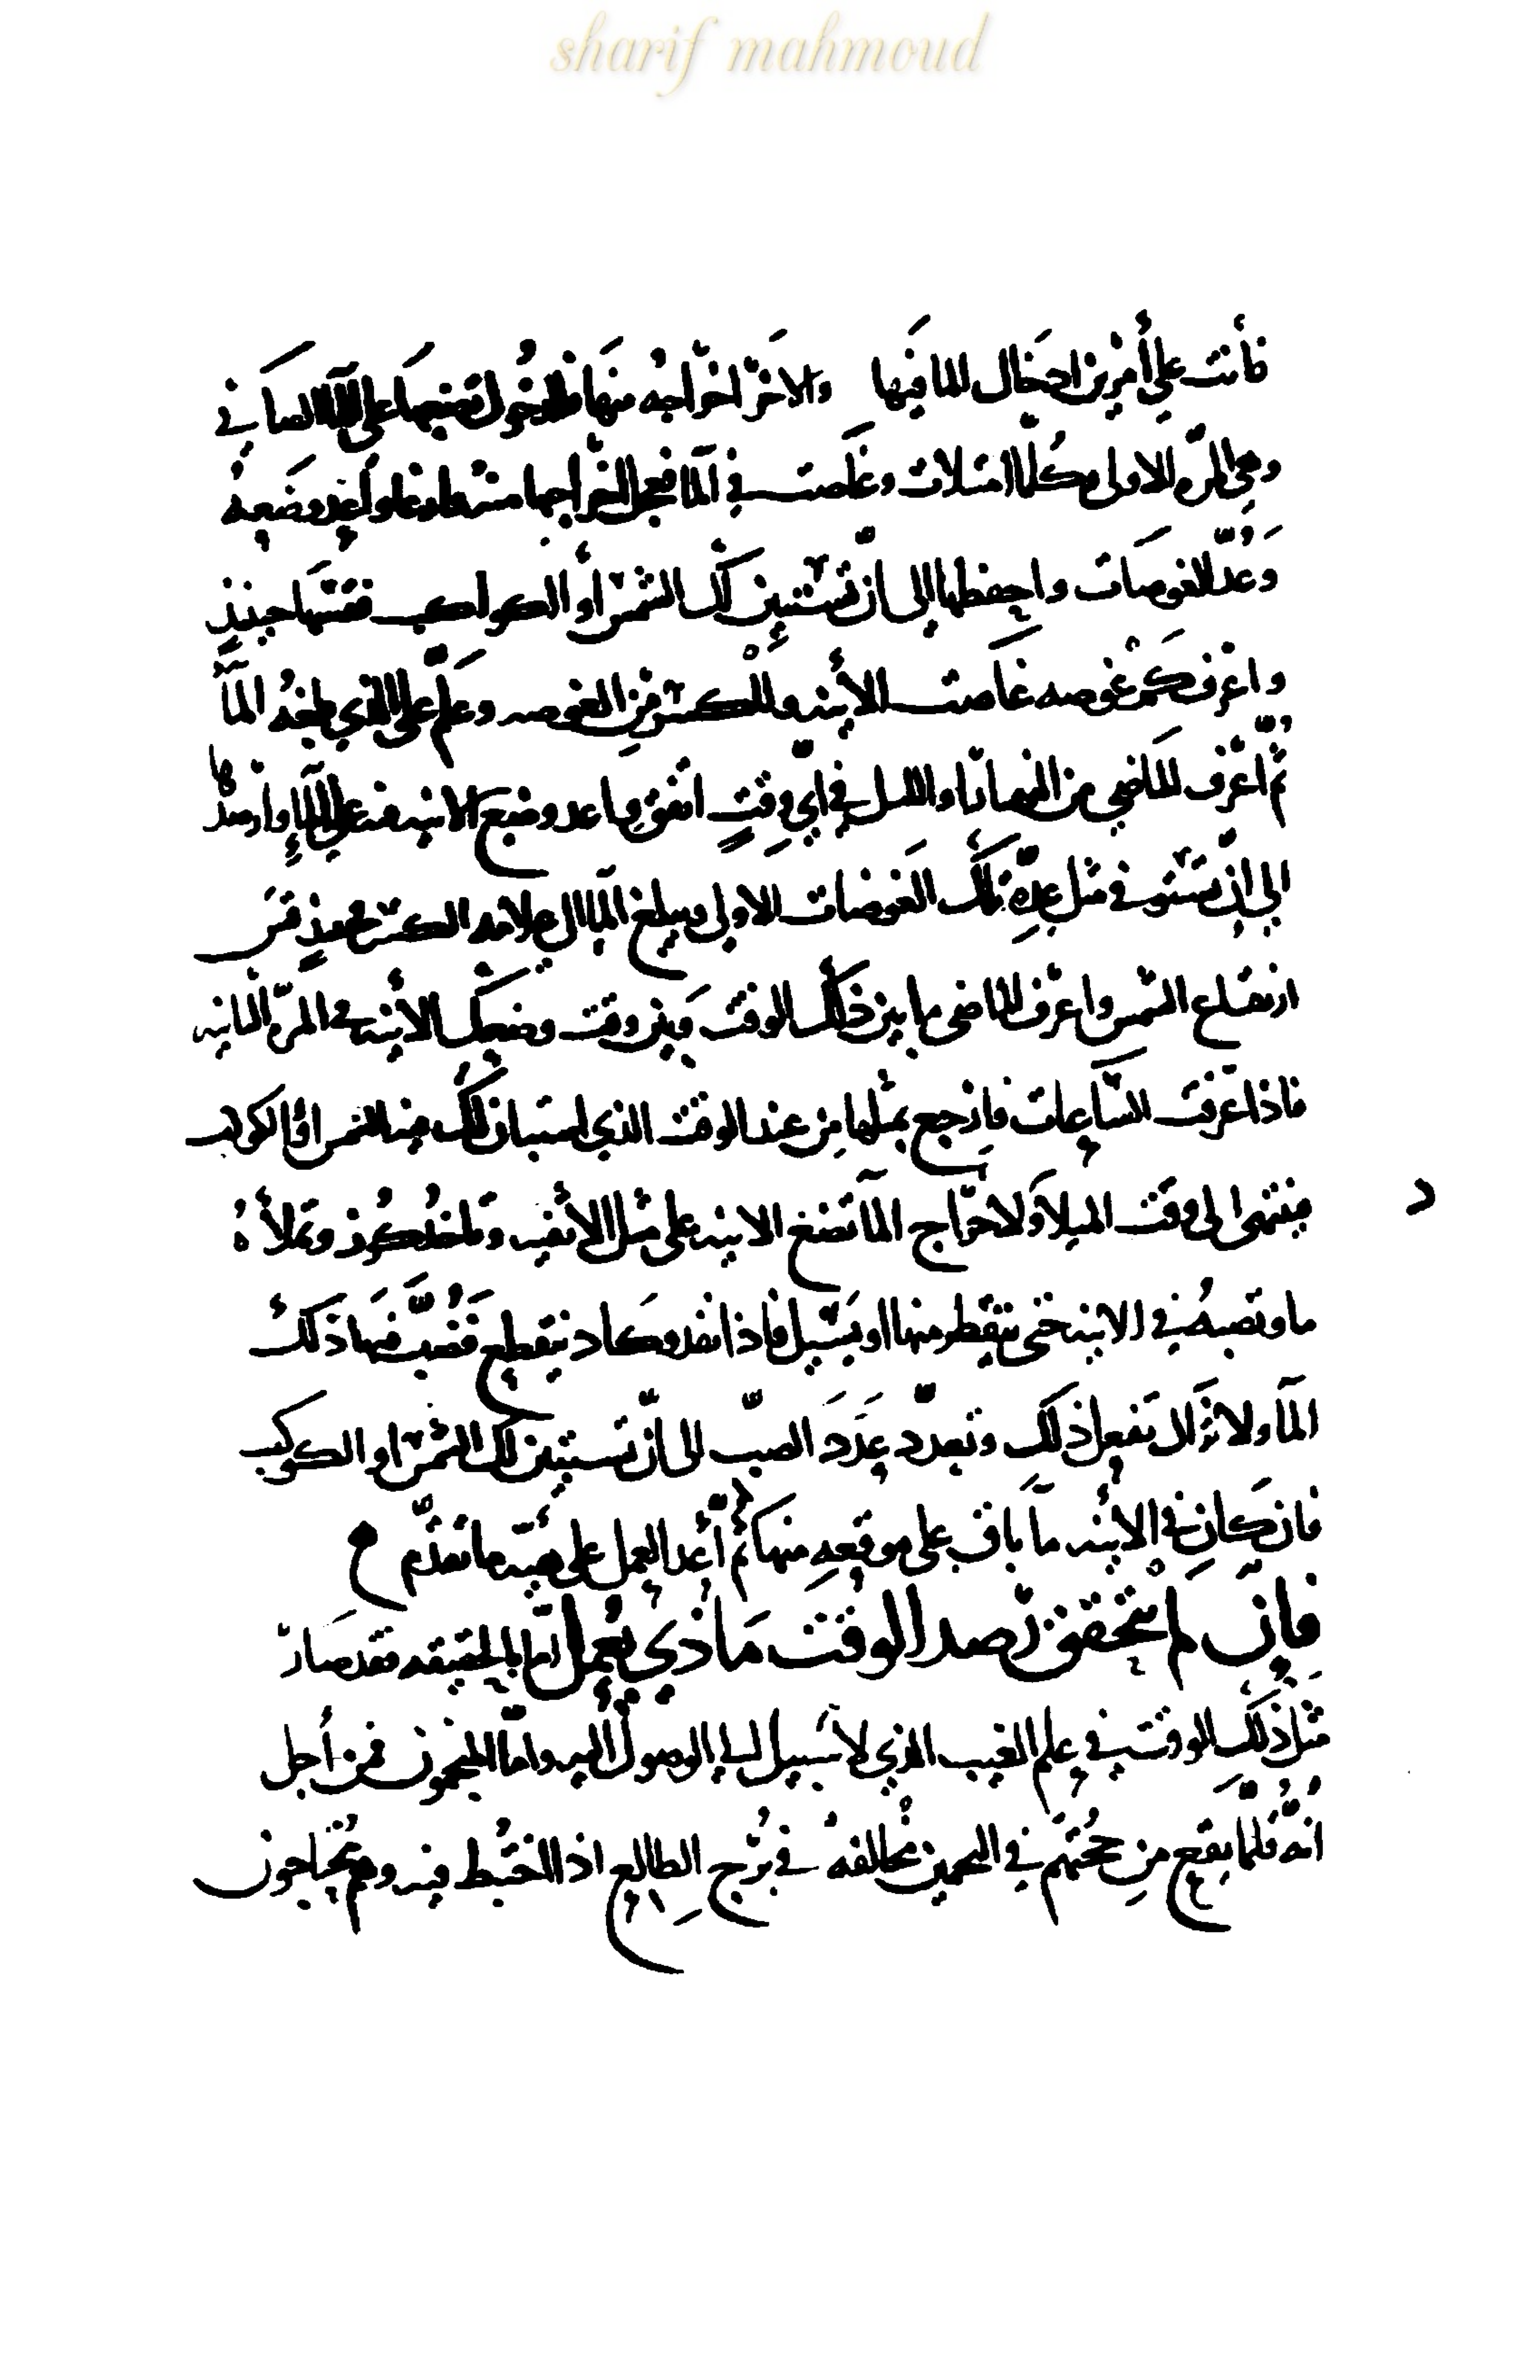 sharif mahmoud
فأنت على أمرين ادخال الماء فيها والآخر اخراجه منها فللدخول تضعها على الماء الصافي
وهي المره الاولى وكلما امتلات وغاصت في الماء فعجل اخراجها منه وضعه
وعد الغوصات واحفظها الى ان تستبين لك الشمس أو الكواكب فقسها حينئذ
واعرف كم غوصه غاصت الأنيه والكسر من الغوصه وعلم على الذي بلغه الماء
ثم اعرف الماضي من النهار او الليل في أي وقت اتفق وضع الانيه على الماء وارصدها
الى ان تستوفي مثل عدة تلك الغوصات الاولى ويبلغ الماء الى علامه الكسر فحينئذ قس
ارتفاع الشمس واعرف الماضي ما بين ذلك الوقت وبين وقت وضعك الأنيه في المره الثانيه
فاذا عرفت الساعات فارجع بمثلها من عند الوقت الذي استبان لك فيه الشمس او الكواكب
فينتهى الى وقت الميلاد ولاخراج الماء تضع الانيه على مثل الأثفيه وتاخذ كوز وتملأه
ما وتصبه في الانيه حتى يتقطر منها او يسيل فاذا نفد وكاد ينقطع فصب فيها ذلك
الماء ولا تزال تفعل ذلك وتعد عدد الصب الى ان تستبين لك الشمس او الكوكب
فان كان في الأنيه ماء باق علم موقعه منها ثم أعد العمل على هيئة ما تقدم
فإن لم يتحقق رصد الوقت ماذى يعمل اما بالحقيقه فقد صار
مثل ذلك الوقت في علم الغيب الذي لا سبيل الى الوصول اليه واما المنجمون فمن أجل
انه قلما يقع من حجتهم في التخمين مخالفه في برج الطالع اذا اختبط فيه وهم يحتاجون